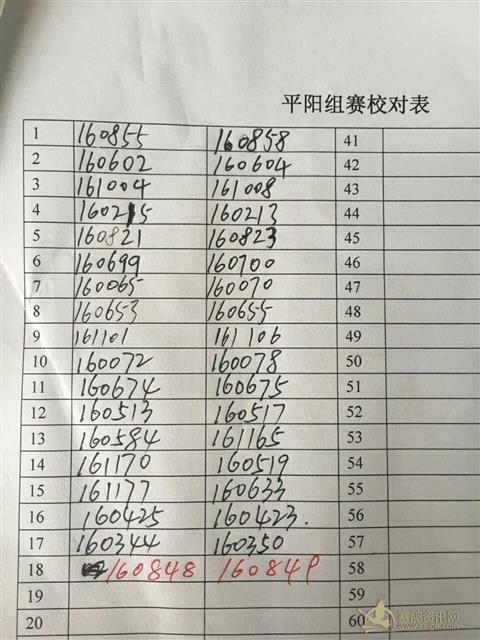 平阳组赛校对表
1 160855 160858 41
2 160602 160604 42
3 161004 161008 43
4 160215 160213 44
5 160821 160823 45
6 160699 160700 46
7 160065 160070 47
8 160653 160655 48
9 161101 161106 49
10 160072 160078 50
11 160674 160675 51
12 160513 160517 52
13 160584 161165 53
14 161170 160519 54
15 161177 160633 55
16 160425 160423. 56
17 160344 160350 57
18 160848 160849 58
19 59
20 60
赛鸽资讯网